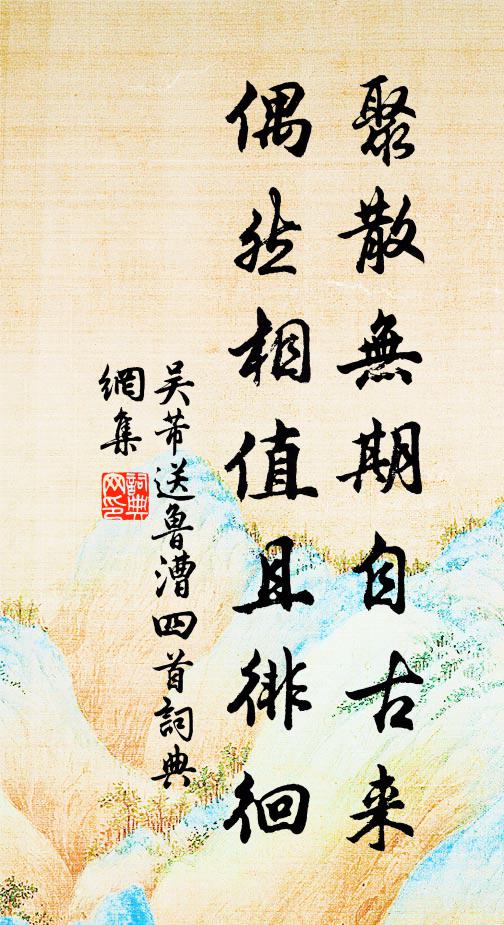 聚散無期自古来
偶然相值且徘徊
吴芾送魯漕四首詞典
網集
詞典网印